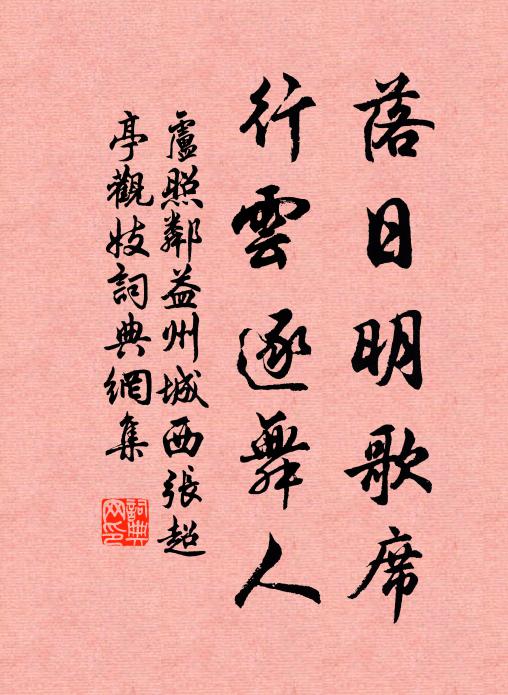 落日明歌席
行雲逐舞人
盧照鄰益州城西張超
亭觀妓詞典網集
詞典
网印